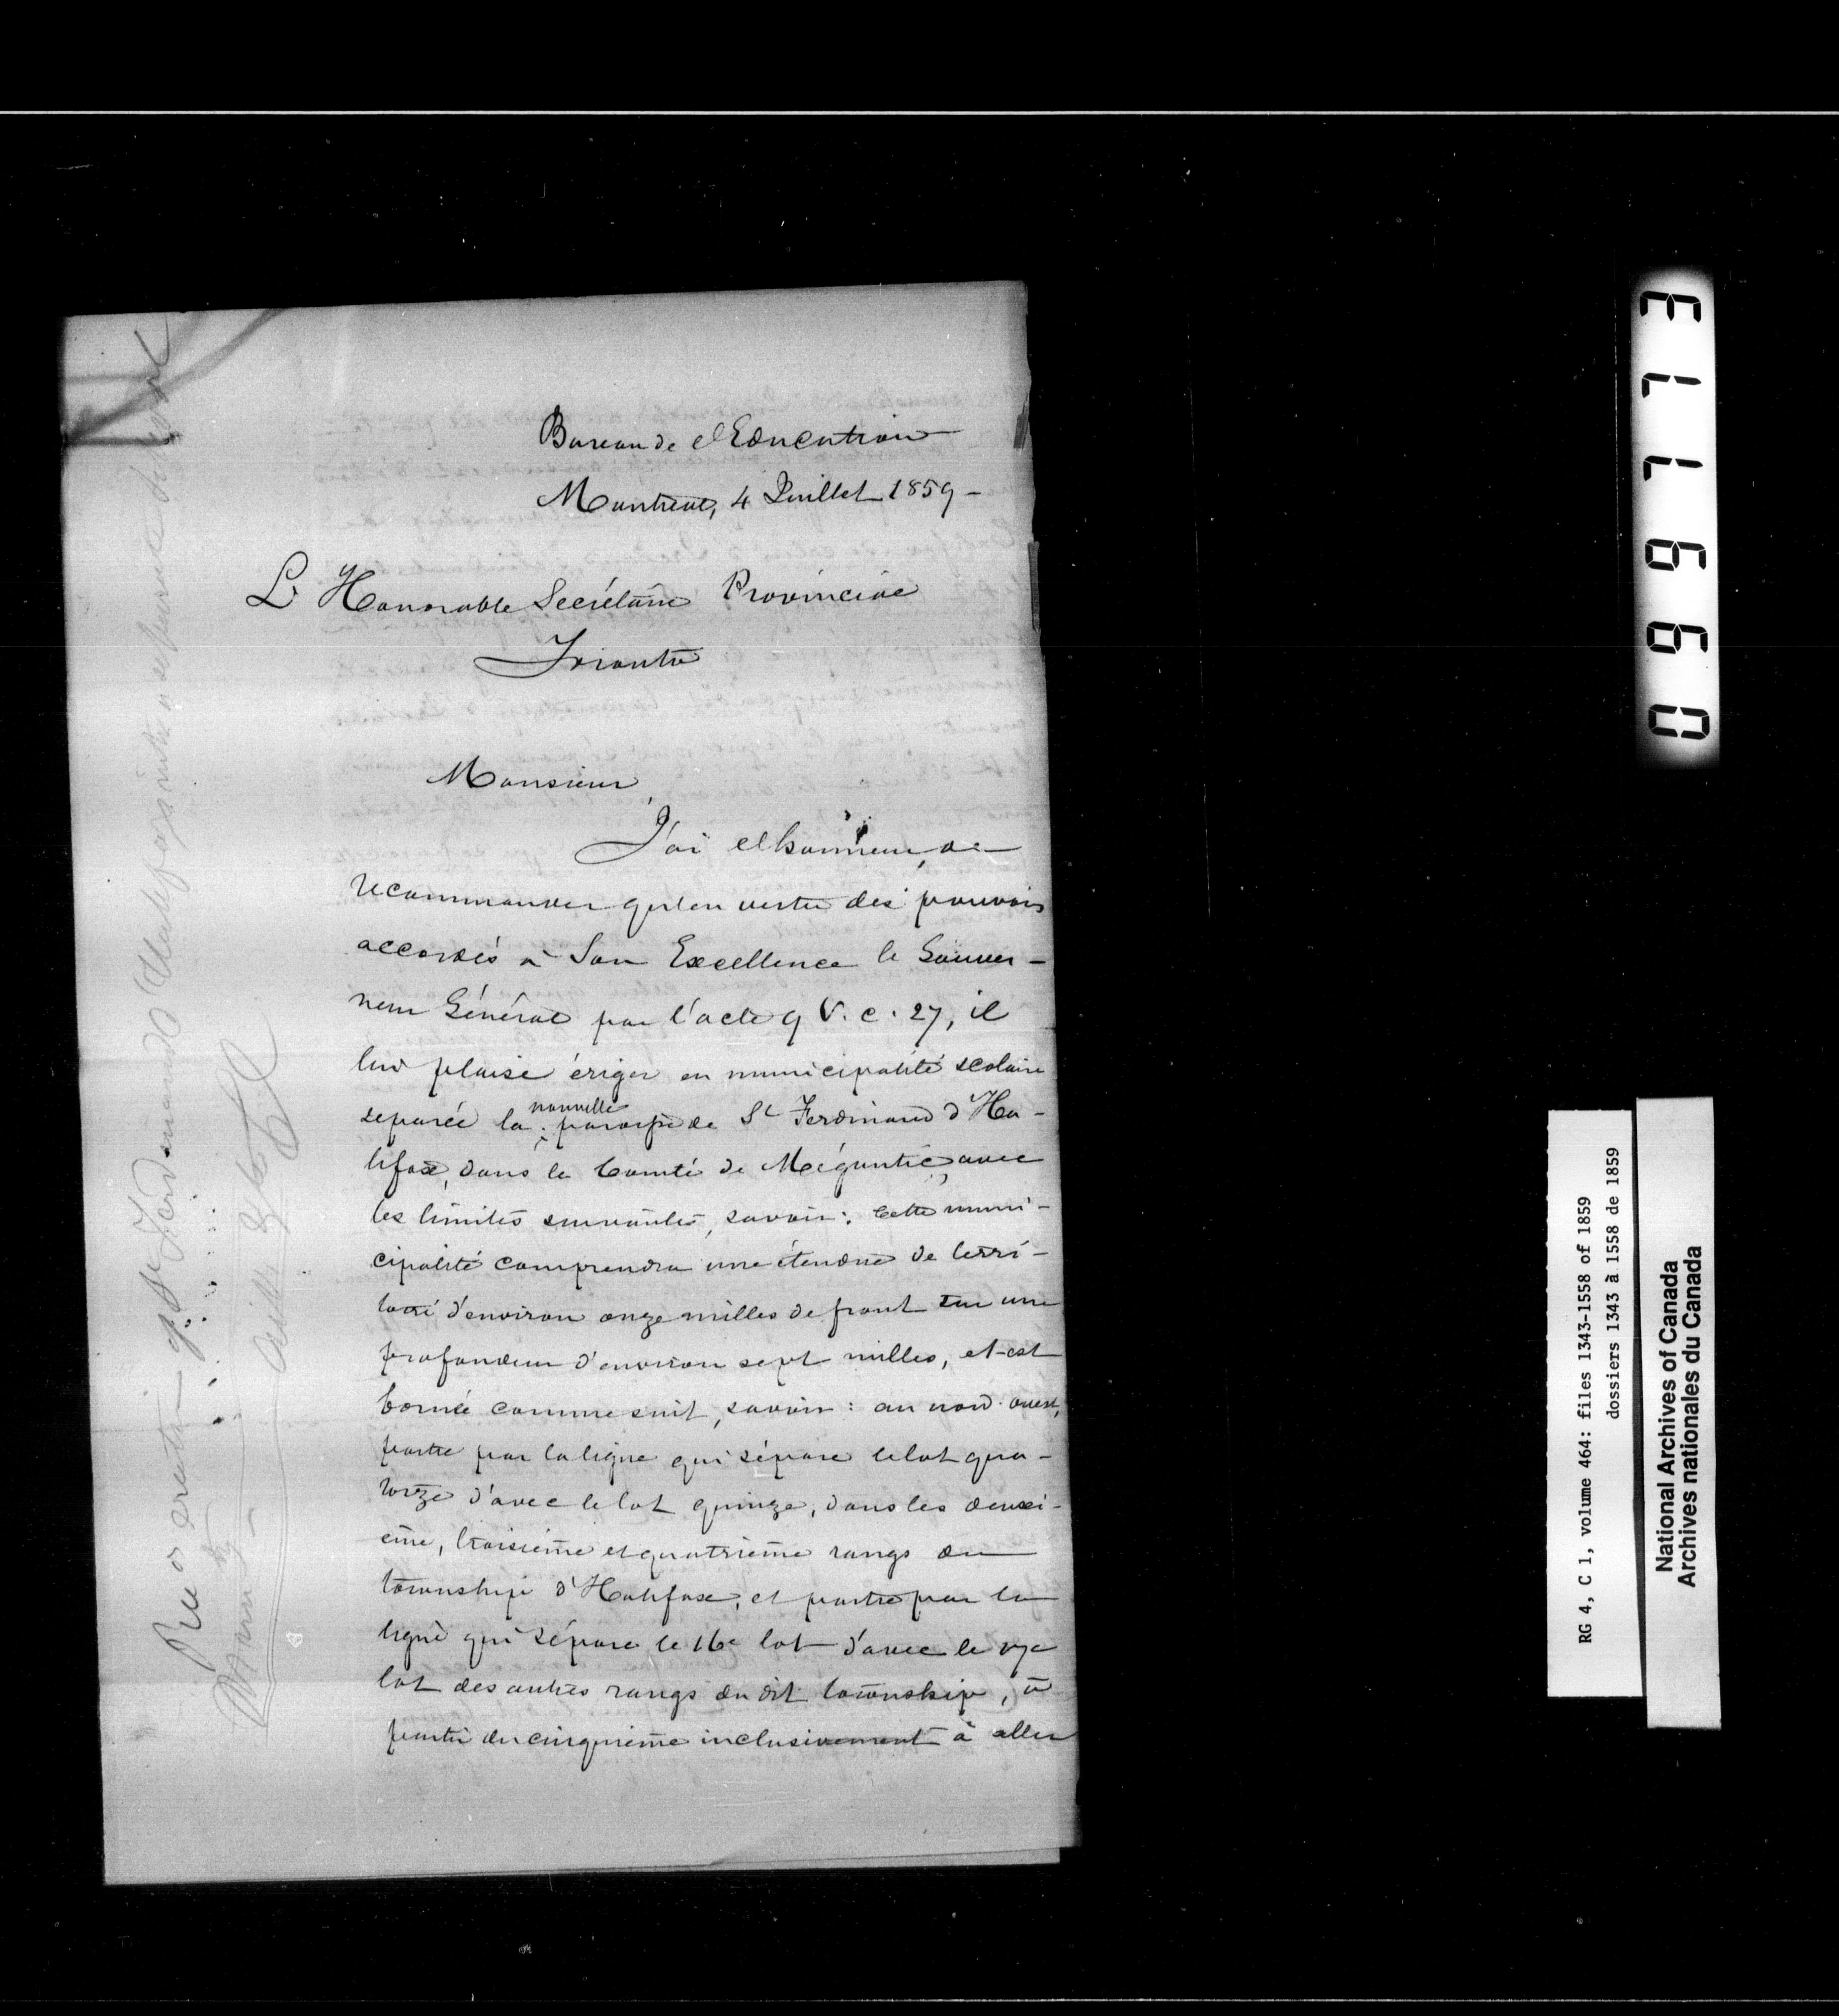 Bureau de l'Education
Montreal, 4 Juillet 1859 -
L'Honorable Secrétaire Provincial
Toronto
Monsieur,
J'ai l'honneur, de
recommander qu'en vertu des pouvoirs
accordés à Son Excellence le Gouver-
neur Général par l'acte 9 V. c. 27, il
lui plaise ériger en municipalité scolaire
separée la nouvelle paroisse de St Ferdinand d'Ha-
lifax, dans le Comté de Mégantic, avec
les limites suivantes, savoir: Cette muni-
cipalité comprendra une étendue de terri-
toire d'environ onze milles de front sur une
profondeur d'environ sept milles, et est
bornée comme suit, savoir: au nord-ouest,
partie par la ligne qui sépare le lot qua-
torze d'avec le lot quinze, dans les deuxi-
ème, troisième et quatrième rangs du
township d'Halifax, et partie par la
ligne qui sépare le 16e lot d'avec le 17e
lot des autres rangs du dit township, à
partir du cinquième inclusivement à aller
St Ferdinand d'Halifax
09 9 1 1 3
RG 4, C 1, volume 464: files 1343-1558 of 1859
dossiers 1343 à 1558 de 1859
National Archives of Canada
Archives nationales du Canada